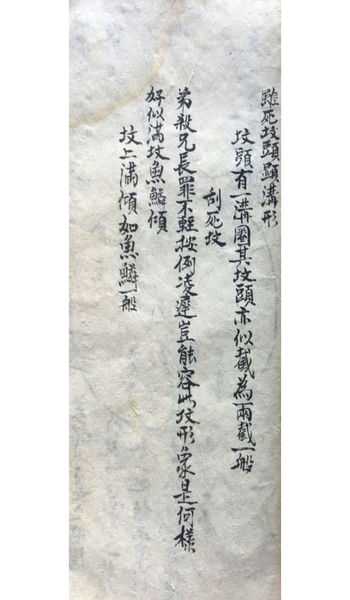 雖死坟頭顕溝形
坟頭有一溝圈其坟頭亦似截為兩截一般
剮死坟
弟殺兄長罪不軽按例凌遲豈能容此坟形象是何樣
好似滿坟魚鱗傾
坟上滿傾如魚鱗一般